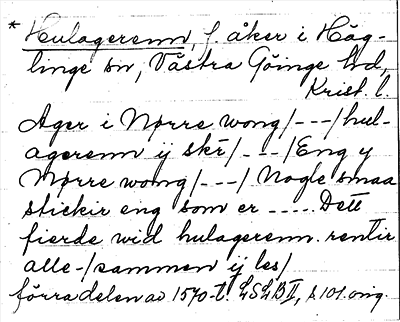 * Hulagerenn, f. åker i Häg-
linge sn, Västra Göinge hd,
Krist. l.
Ager i Nørre wong/---/hul-
agerenn ij skr/---/Eng y
Nørre wong/---/ Nogle smaa
stickir eng som er ..... Dett
fierde wid hulagerenn. rentir
alle-/sammen ij les/
förra delen av 1570-t. LSLBII, s 101. orig.